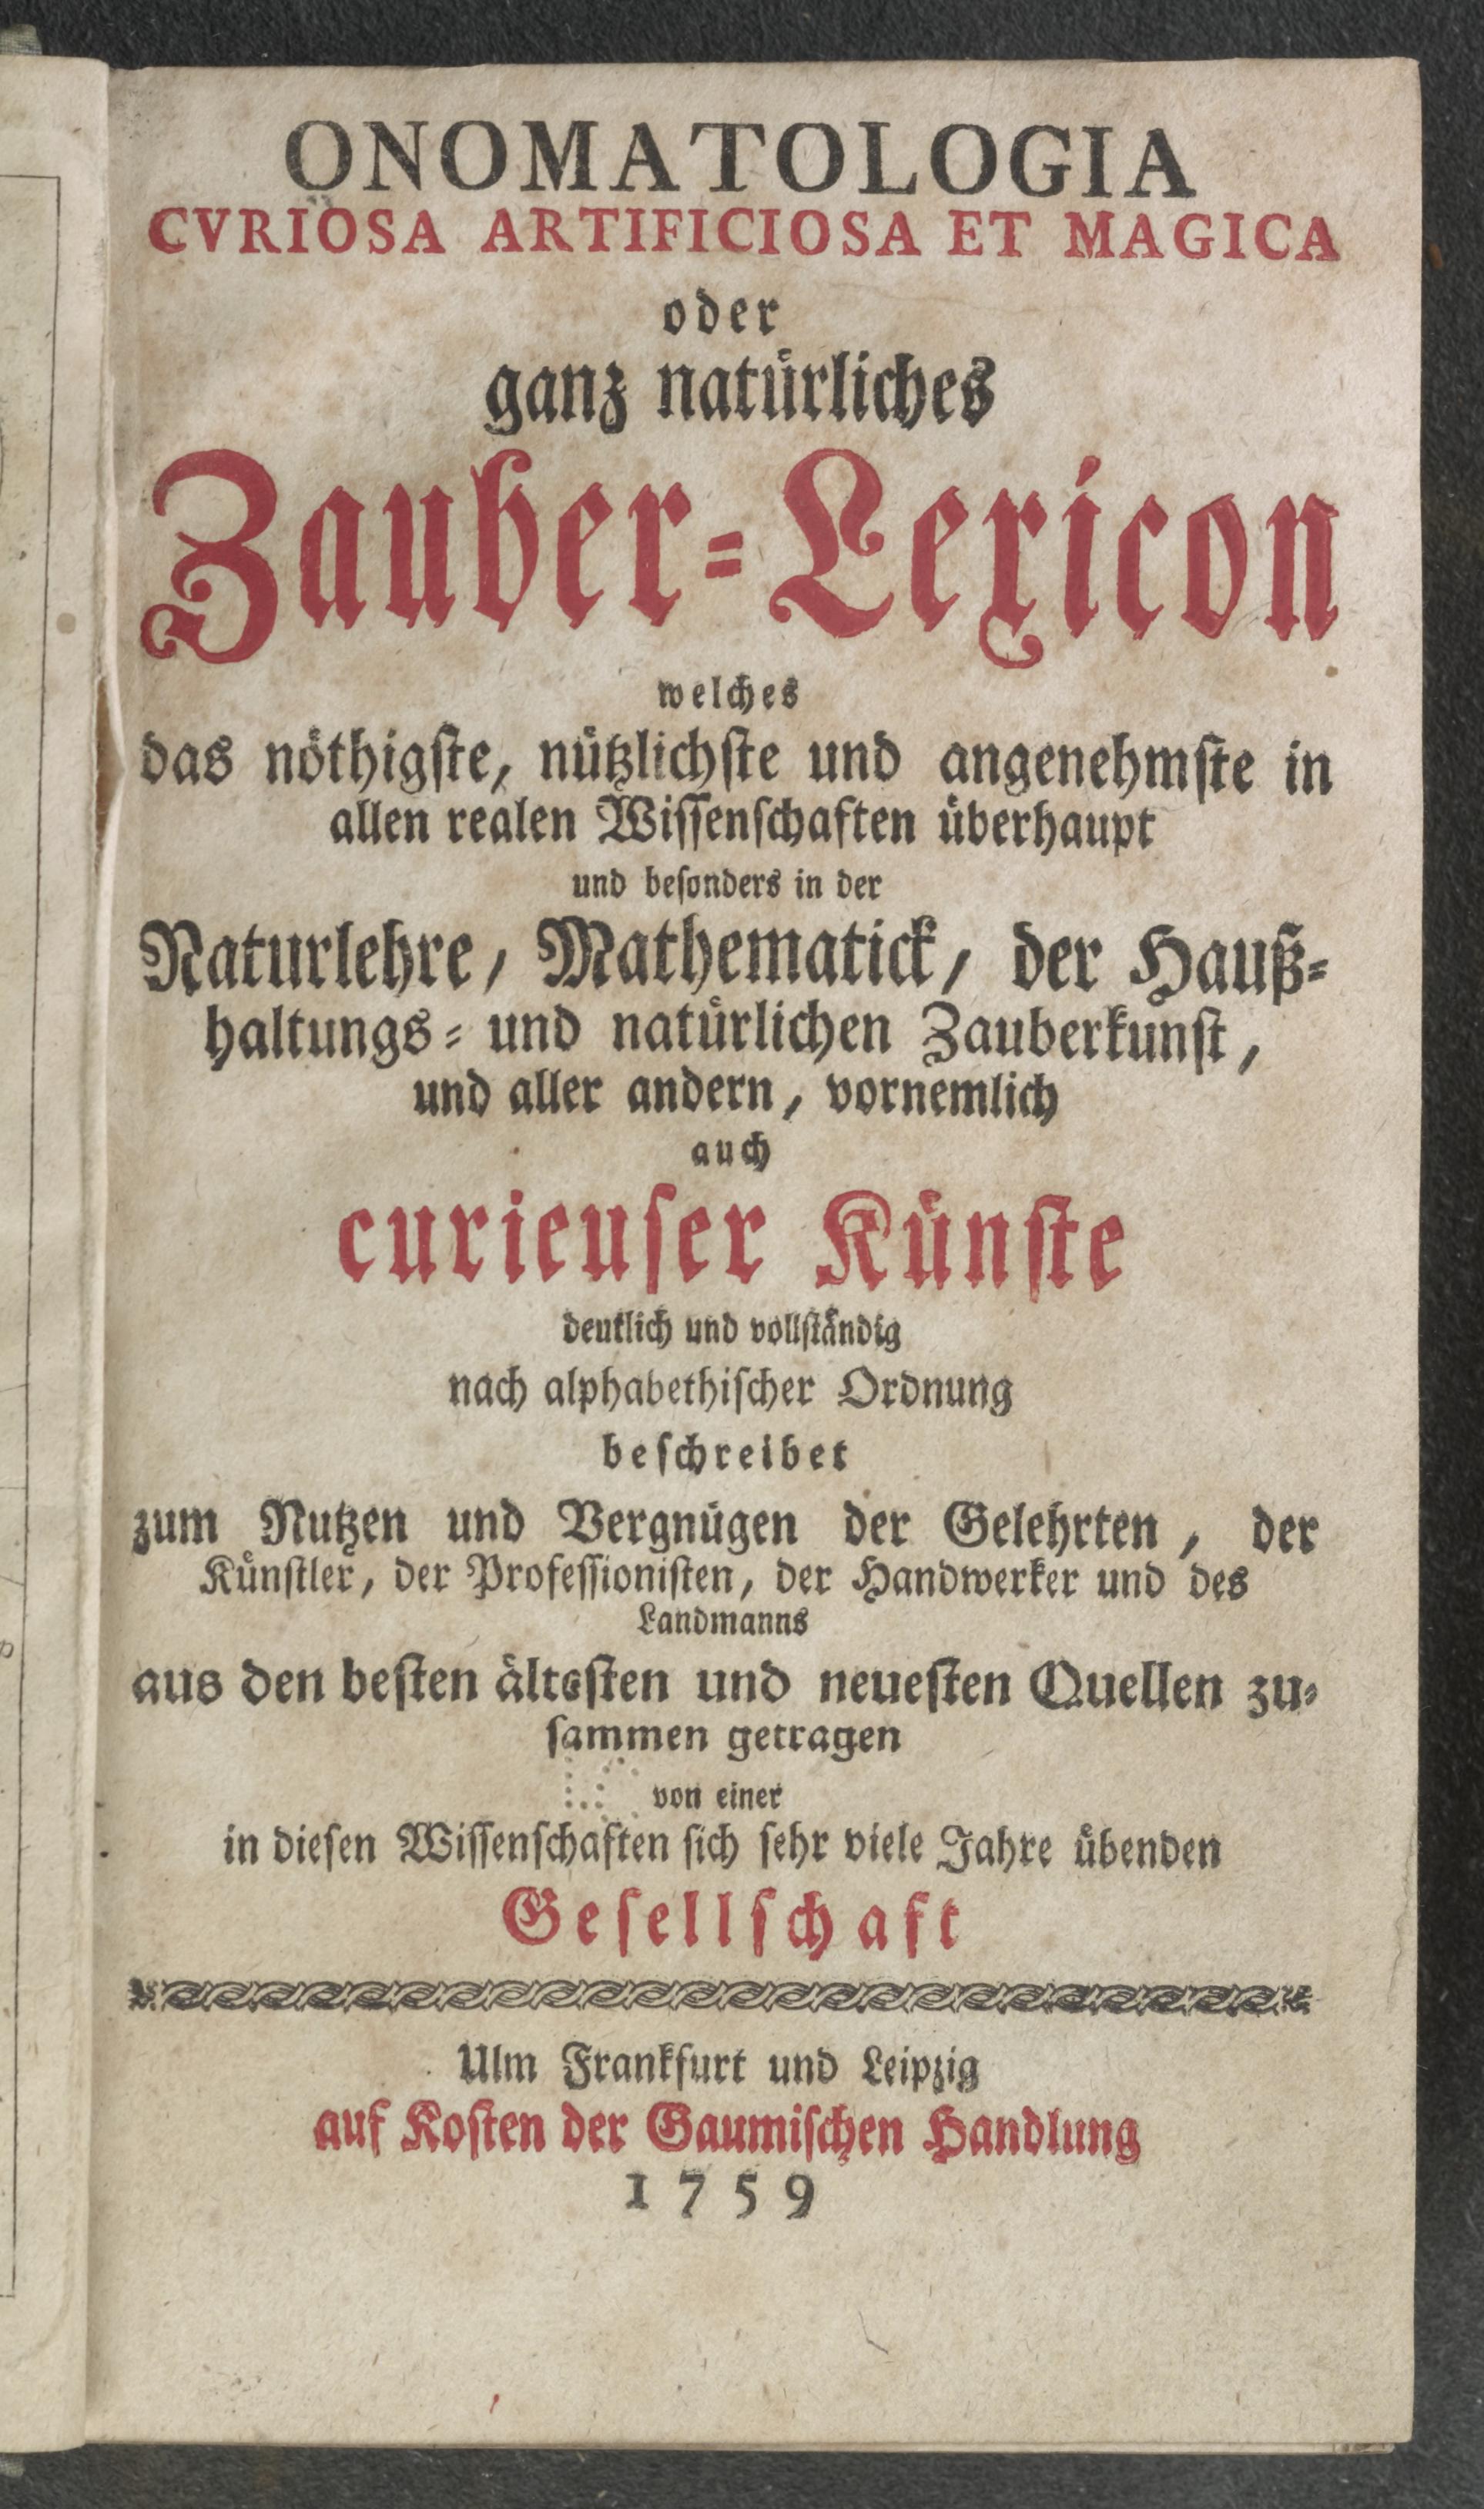 ONOMATOLOGIA
CVRIOSA ARTIFICIOSA ET MAGICA
oder
ganz natürliches
Zauber-Lexicon
welches
das nöthigste, nützlichste und angenehmste in
allen realen Wissenschaften überhaupt
und besonders in der
Naturlehre, Mathematick, der Hauß-
haltungs- und natürlichen Zauberkunst,
und aller andern, vornemlich
auch
curieuser Künste
deutlich und vollständig
nach alphabethischer Ordnung
beschreibet
zum Nutzen und Vergnügen der Gelehrten, der
Künstler, der Professionisten, der Handwerker und des
Landmanns
aus den besten ältesten und neuesten Quellen zu-
sammen getragen
von einer
in diesen Wissenschaften sich sehr viele Jahre übenden
Gesellschaft
Ulm Frankfurt und Leipzig
auf Kosten der Gaumischen Handlung
1759